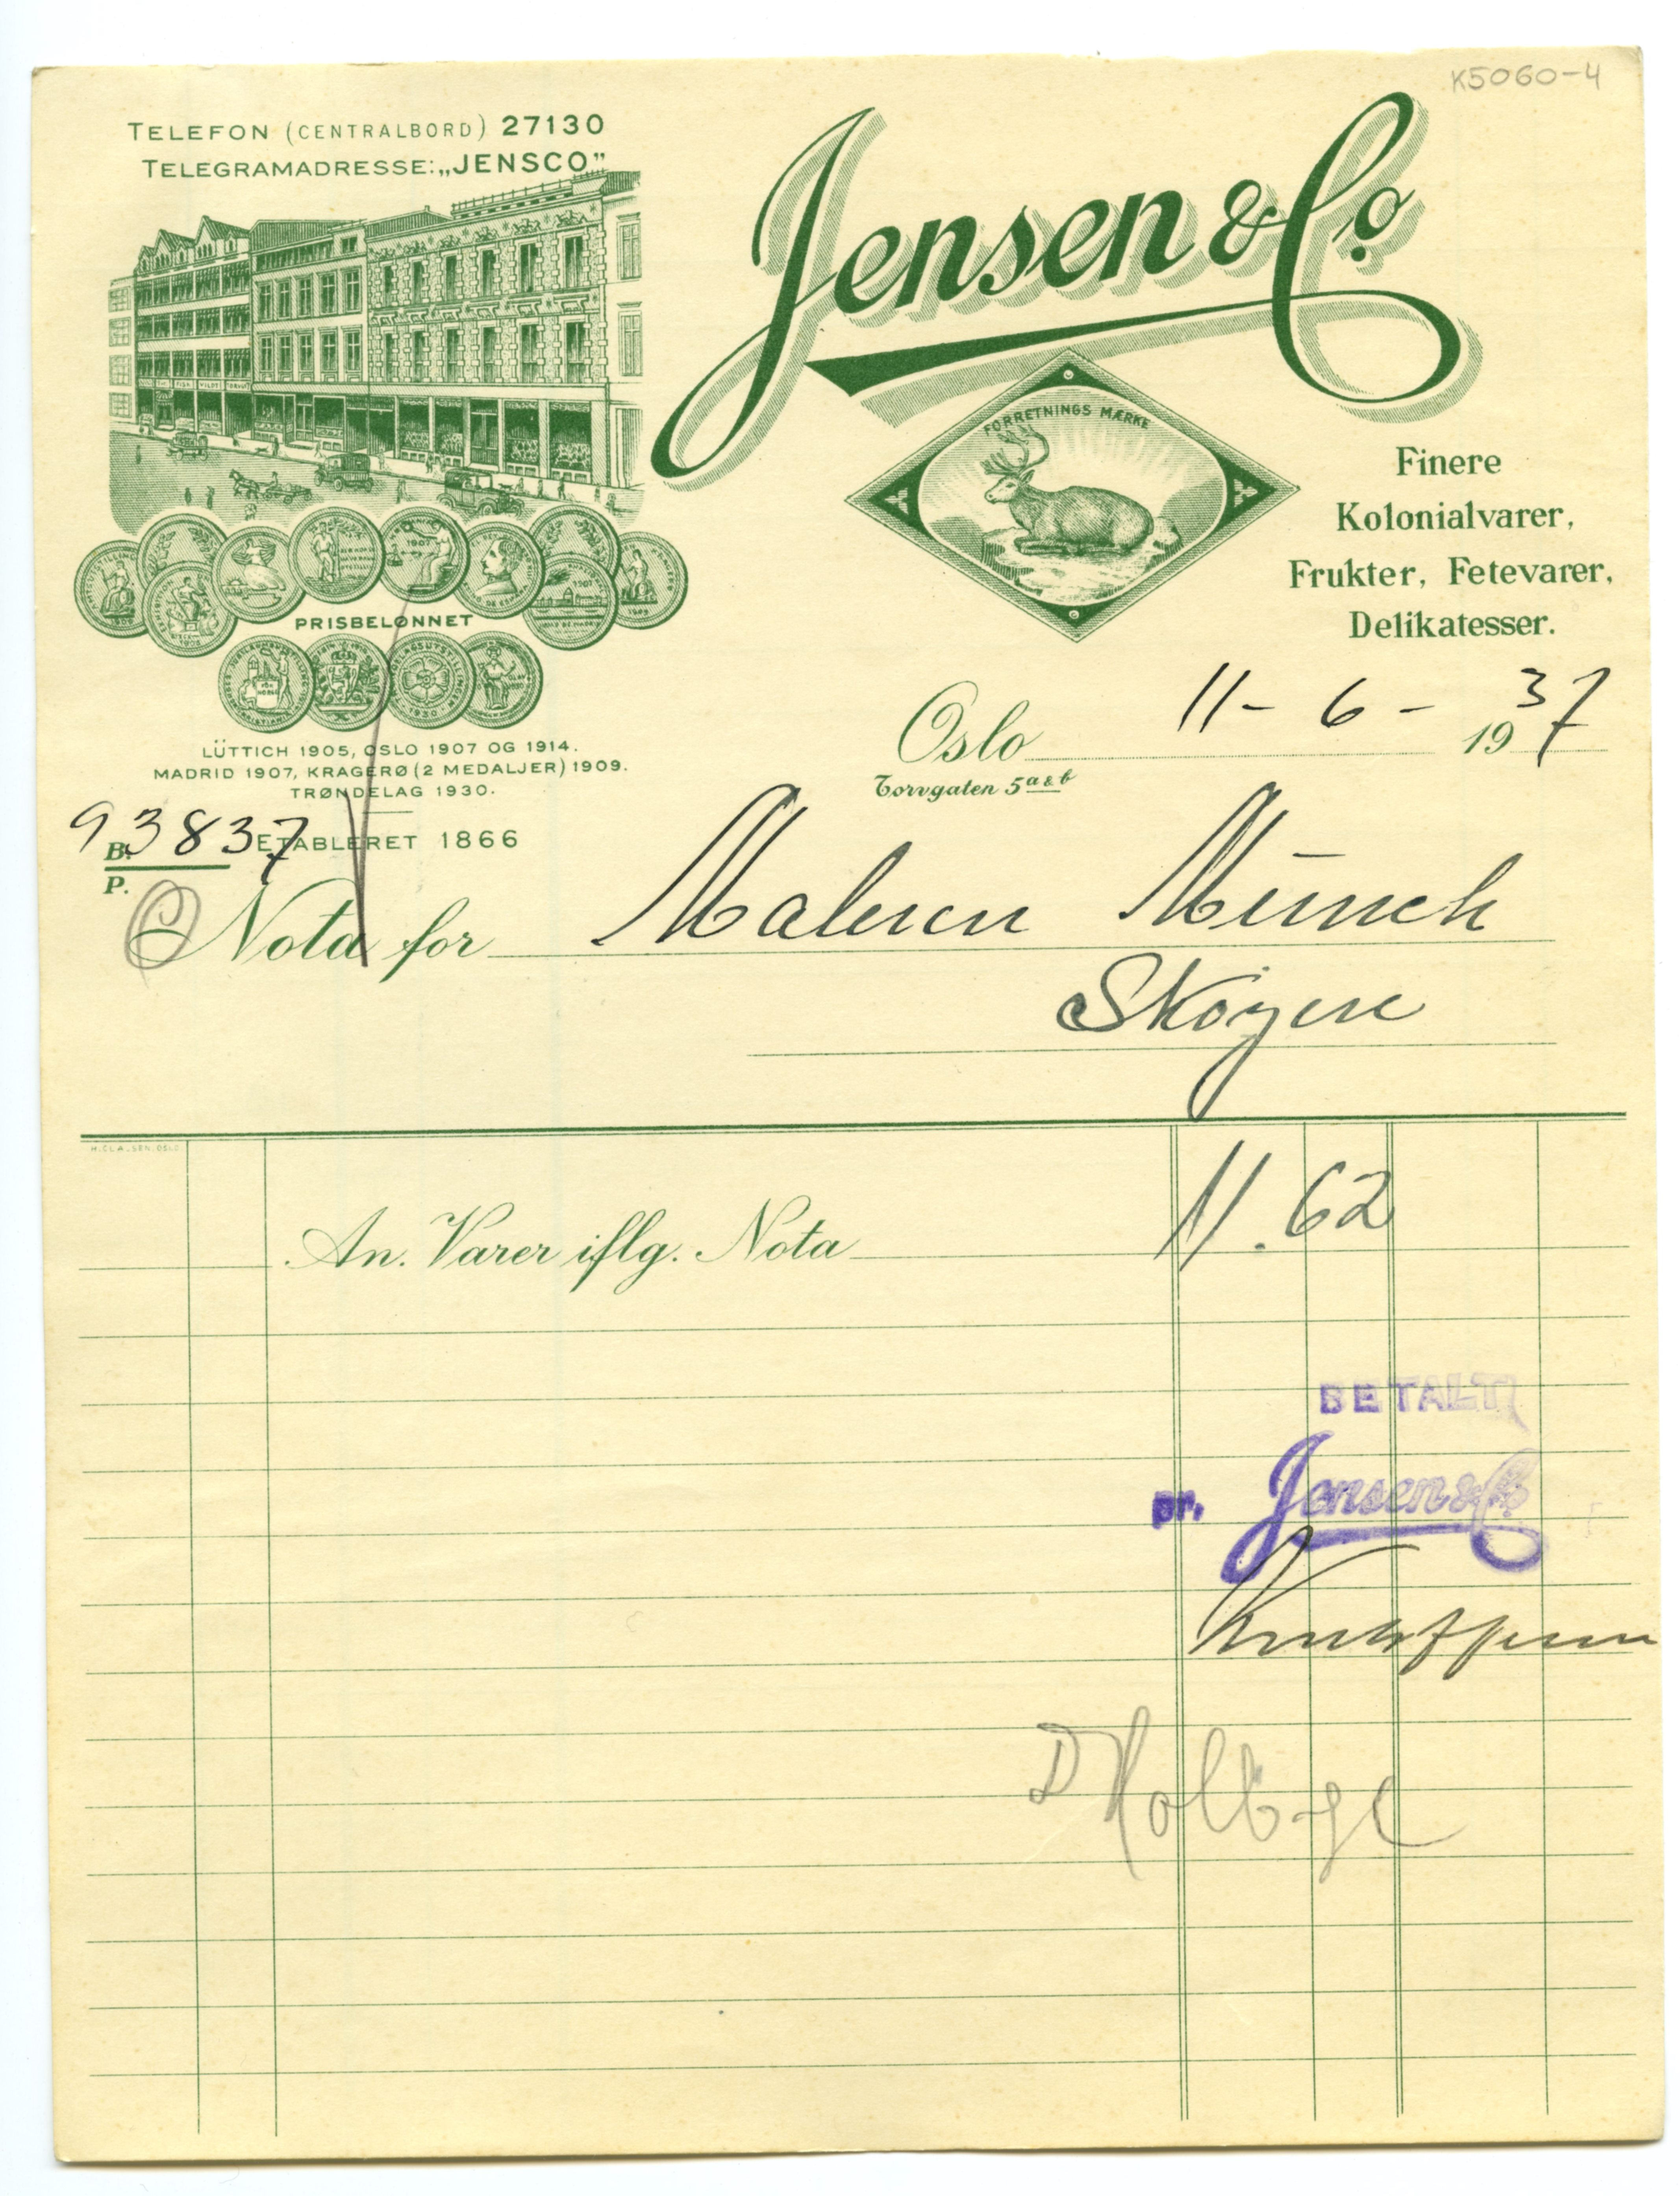 K5060-4
TELEFON (CENTRALBORD) 27130
TELEGRAMADRESSE: „JENSCO”
Jensen & Co.
FORRETNINGS MÆRKE
Finere
Kolonialvarer,
Frukter, Fetevarer,
Delikatesser.
FISK VILDT
1907
PRISBELØNNET
1930
LÜTTICH 1905, OSLO 1907 OG 1914.
MADRID 1907, KRAGERØ (2 MEDALJER) 1909.
TRØNDELAG 1930.
ETABLERET 1866
Oslo 11-6-1937
Torvgaten 5 a & b
93837
B.
P.
Nota for Maleren Münch
Skøyen
H. CLAUSEN, OSLO
An. Varer iflg. Nota 11.62
BETALT
pr. Jensen & Co.